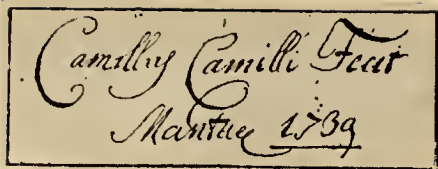 Camillus Camilli Fecit
Mantuæ 1739